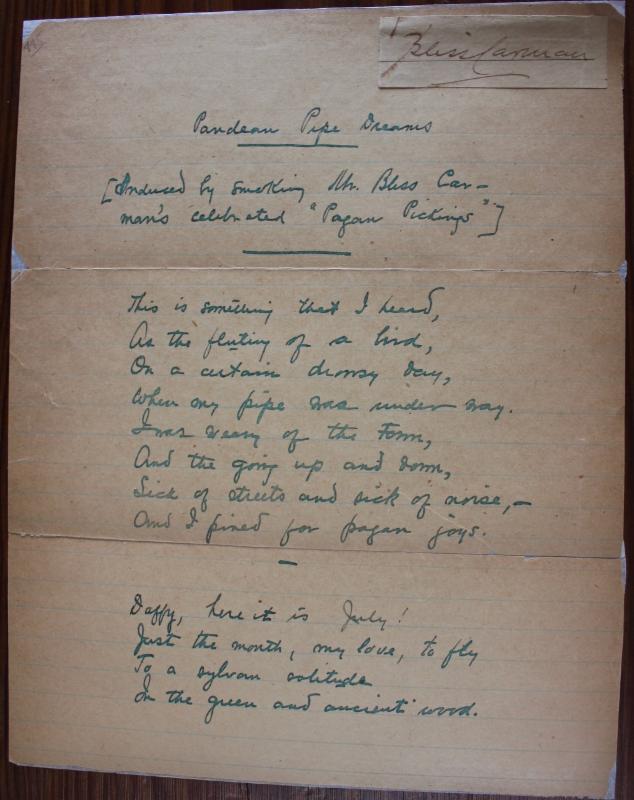 Bliss Carman
Pandean Pipe Dreams
[Induced by smoking Mr. Bliss Car-
man's celebrated "Pagan Pickings".]
This is something that I heard,
As the fluting of a bird,
On a certain drowsy day,
When my pipe was under way.
I was weary of the Town,
And the going up and down,
Sick of streets and sick of noise,—
And I pined for pagan joys.
Daffy, here it is July!
Just the month, my love, to fly
To a sylvan solitude
In the green and ancient wood.